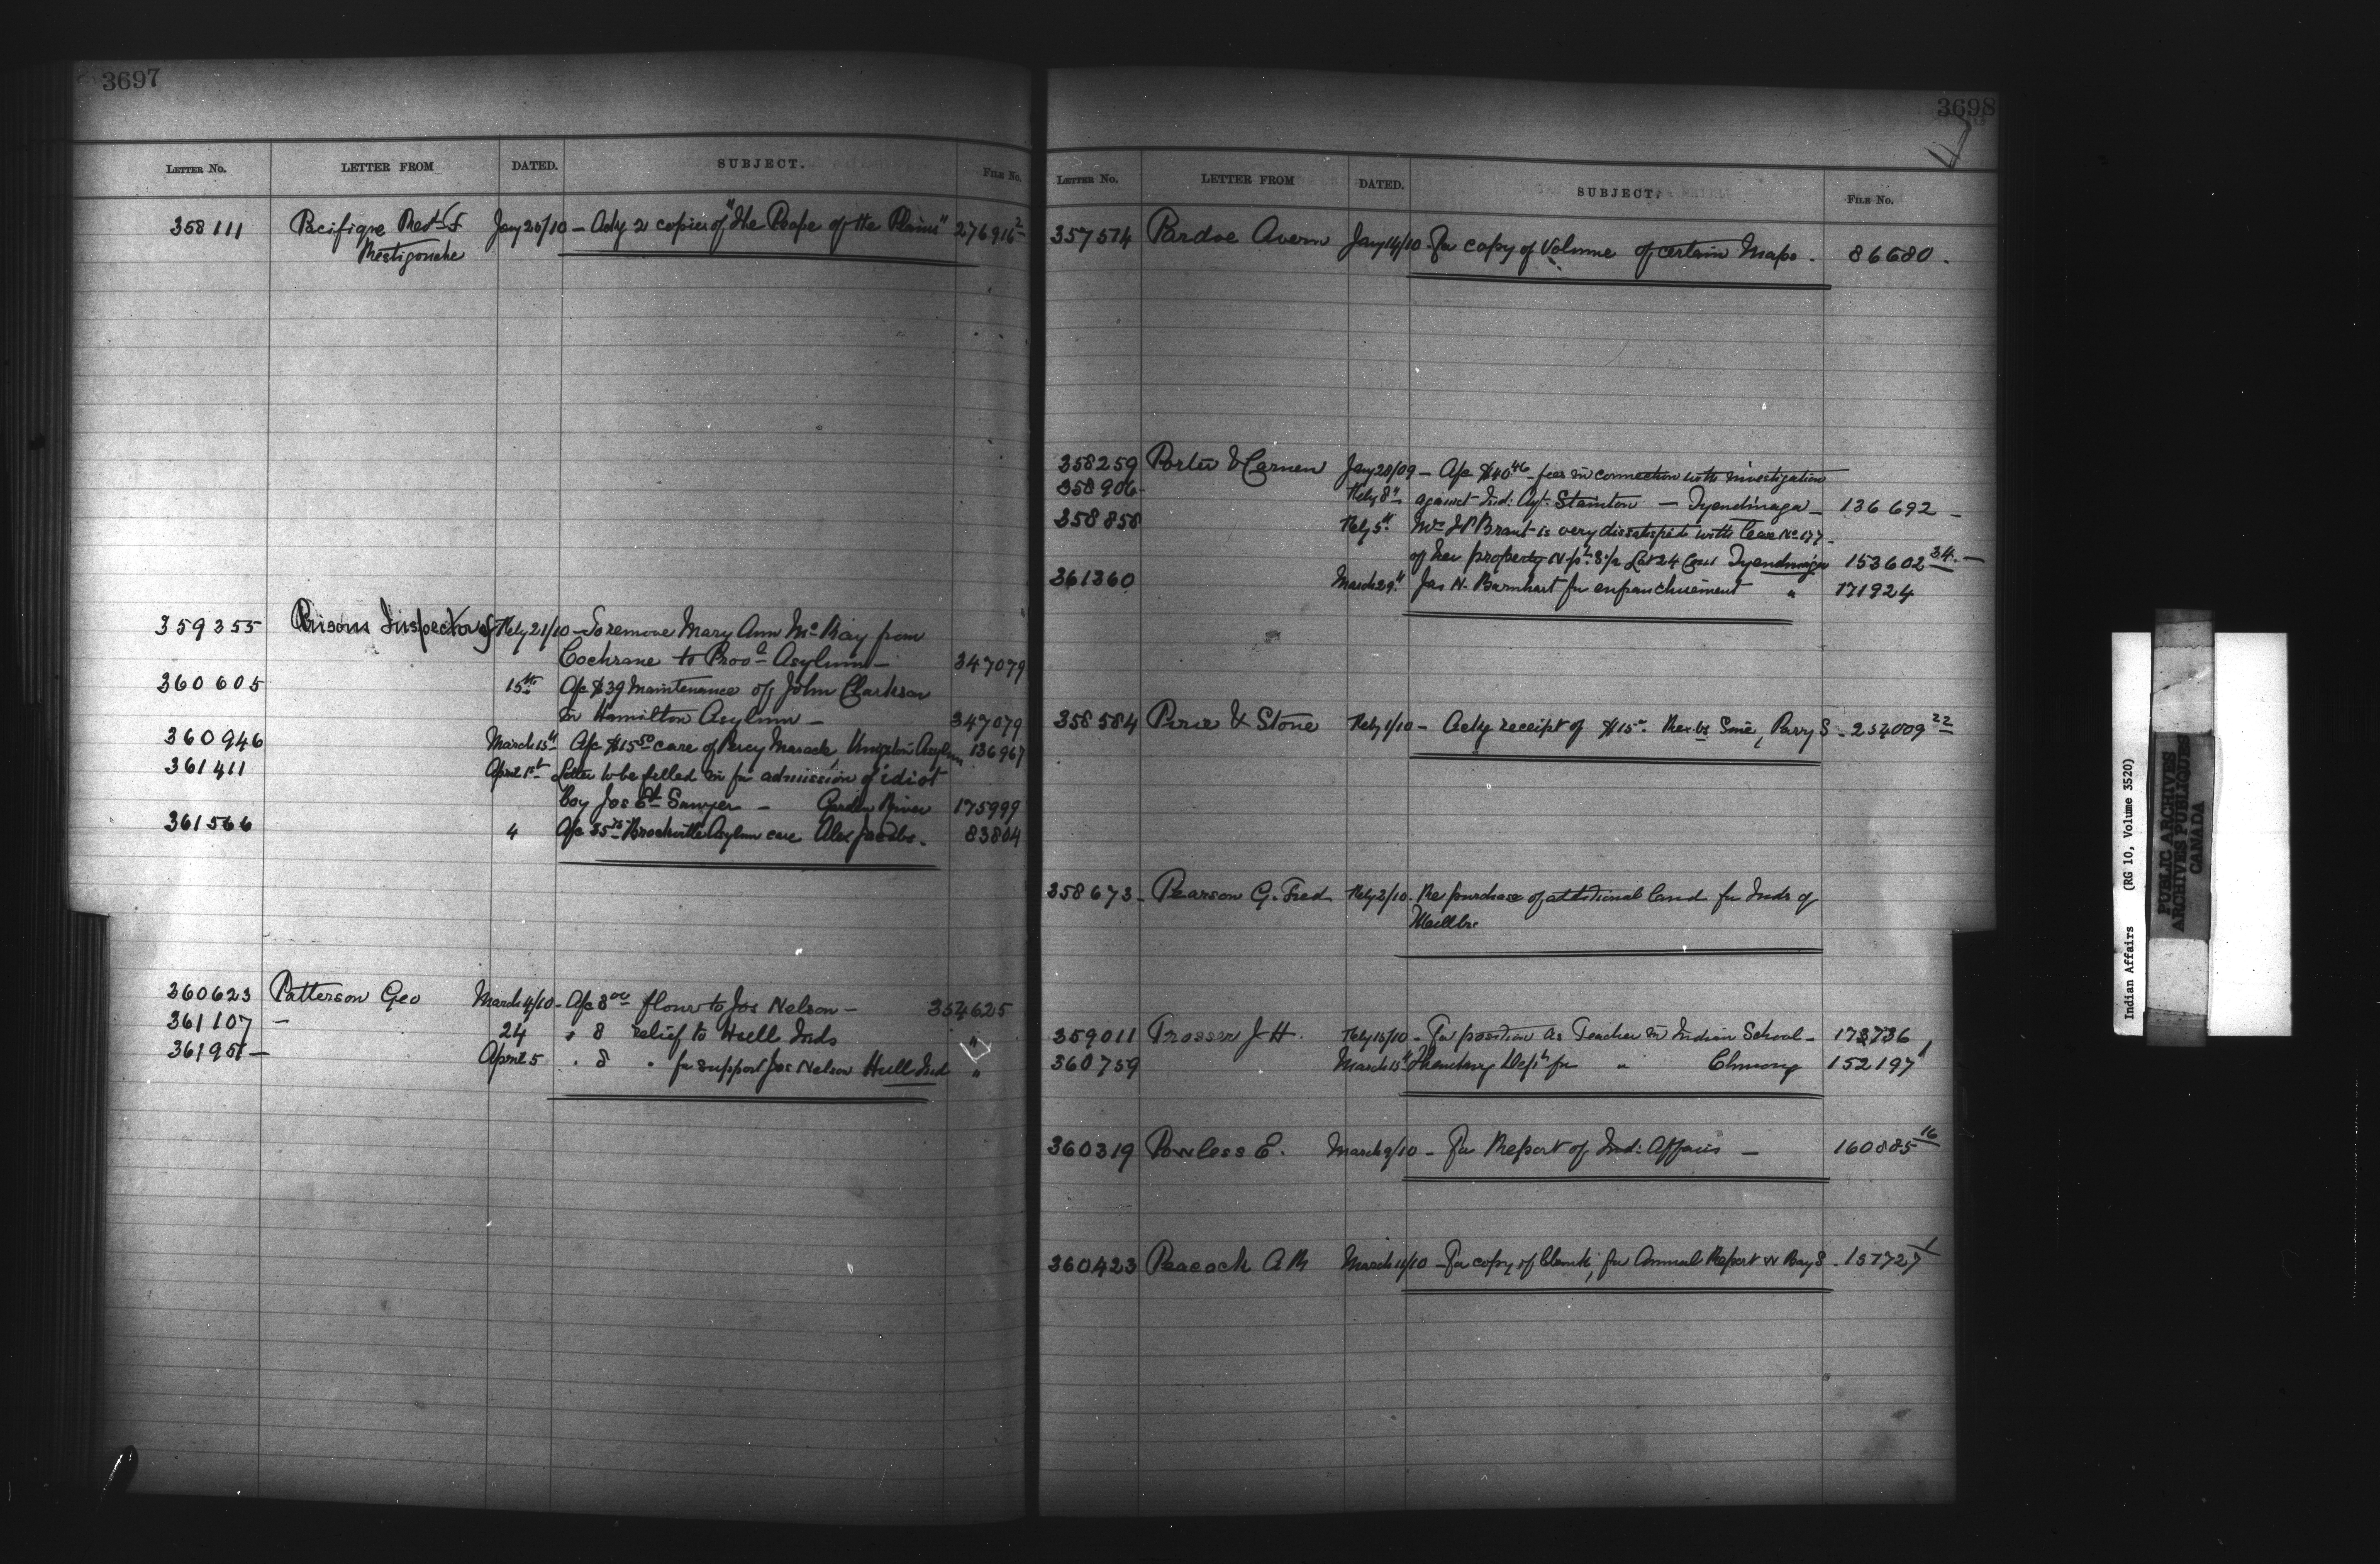 3697
LETTER No. LETTER FROM DATED. SUBJECT. FILE No.
358111 Pacifique Revd F Jany 20/10 - Ackg 2 copies of "The People of the Plains" 276916 2
Restigouche
359355 Prisons Inspector of Feby 21/10 - To remove Mary Ann McKay from
Cochrane to Provl Asylum - 347079
360605 15th A/c $39 Maintenance of John Clarkson
in Hamilton Asylum - 347079
360946 March 15th A/c $15 50 care of Percy Maracle, Kingston Asylum 136967
361411 April 1st Letter to be filled in for admission of idiot
boy Jos Sawyer - Garden River 175999
361566 4 A/c Brockville Asylum care Alex Jacobs. 83804
360623 Patterson Geo March 4/10 - A/c 8 00 flour to Jos Nelson - 354625
361107 - 24 " 8 relief to Hull Inds "
361951 - April 5 " 8 " for support Jos Nelson Hull Ind "
3698
LETTER No. LETTER FROM DATED. SUBJECT. FILE No.
357574 Pardoe Avern Jany 14/10 - For copy of Volume of certain Maps. 86680.
358259 Porter & Carnew Jany 28/09 - A/c $40 46 fees in connection with investigation
358906 Feby 8th against Ind: Agt. Stainton - Tyendinaga - 136692 -
358858 Feby 5th Mrs J P Brant is very dissatisfied with lease No 177
of her property Lot 24 Con 1 Tyendinaga 153602 34. -
361360 March 29th Jas N. Barnhart for enfranchisement " 171924
358584 Pirie & Stone Feby 1/10 - Ackg receipt of $15 Parry S - 254009 22
358673 - Pearson G. Fred Feby 2/10. Re purchase of additional land for Inds of
Millbr.
359011 Prosser J H. Feby 15/10 - For position as Teacher in Indian School - 173736
360759 March 15th Thanking Dept for " Chemong 152197 1
360319 Powless E. March 9/10 - For Report of Ind: Affairs - 160885 16
360423 Peacock A M March 11/10 - For copy of blank, for Annual Report 157727 1
Indian Affairs (RG 10, Volume 3520)
PUBLIC ARCHIVES
ARCHIVES PUBLIQUES
CANADA